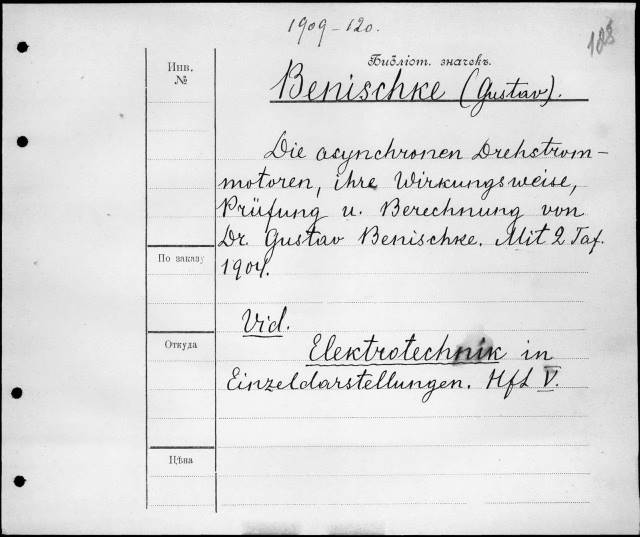 1909-120.
188
Библіот. значекъ.
Инв.
№
Benischke (Gustav).
Die asynchronen Drehstrom-
motoren, ihre Wirkungsweise,
Prüfung u. Berechnung von
Dr. Gustav Benischke. Mit 2 Taf.
По заказу
1904.
Vid.
Откуда
Elektrotechnik in
Einzeldarstellungen. Hft V.
Цѣна